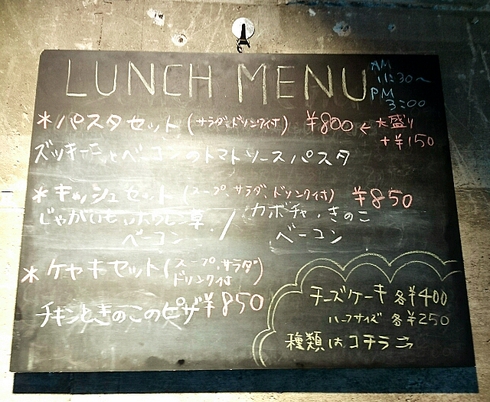 LUNCH MENU
AM
11:30〜
PM
3:00
*パスタセット(サラダ、ドリンク付) ¥800 ← 大盛り
+¥150
ズッキーニとベーコンのトマトソースパスタ
*キッシュセット(スープ、サラダ、ドリンク付) ¥850
じゃがいも、ほうれん草、
ベーコン
/
カボチャ、きのこ
ベーコン
*ケヤキセット(スープ、サラダ
ドリンク付)
チキンときのこのピザ ¥850
チーズケーキ 各¥400
ハーフサイズ 各¥250
種類はコチラ→